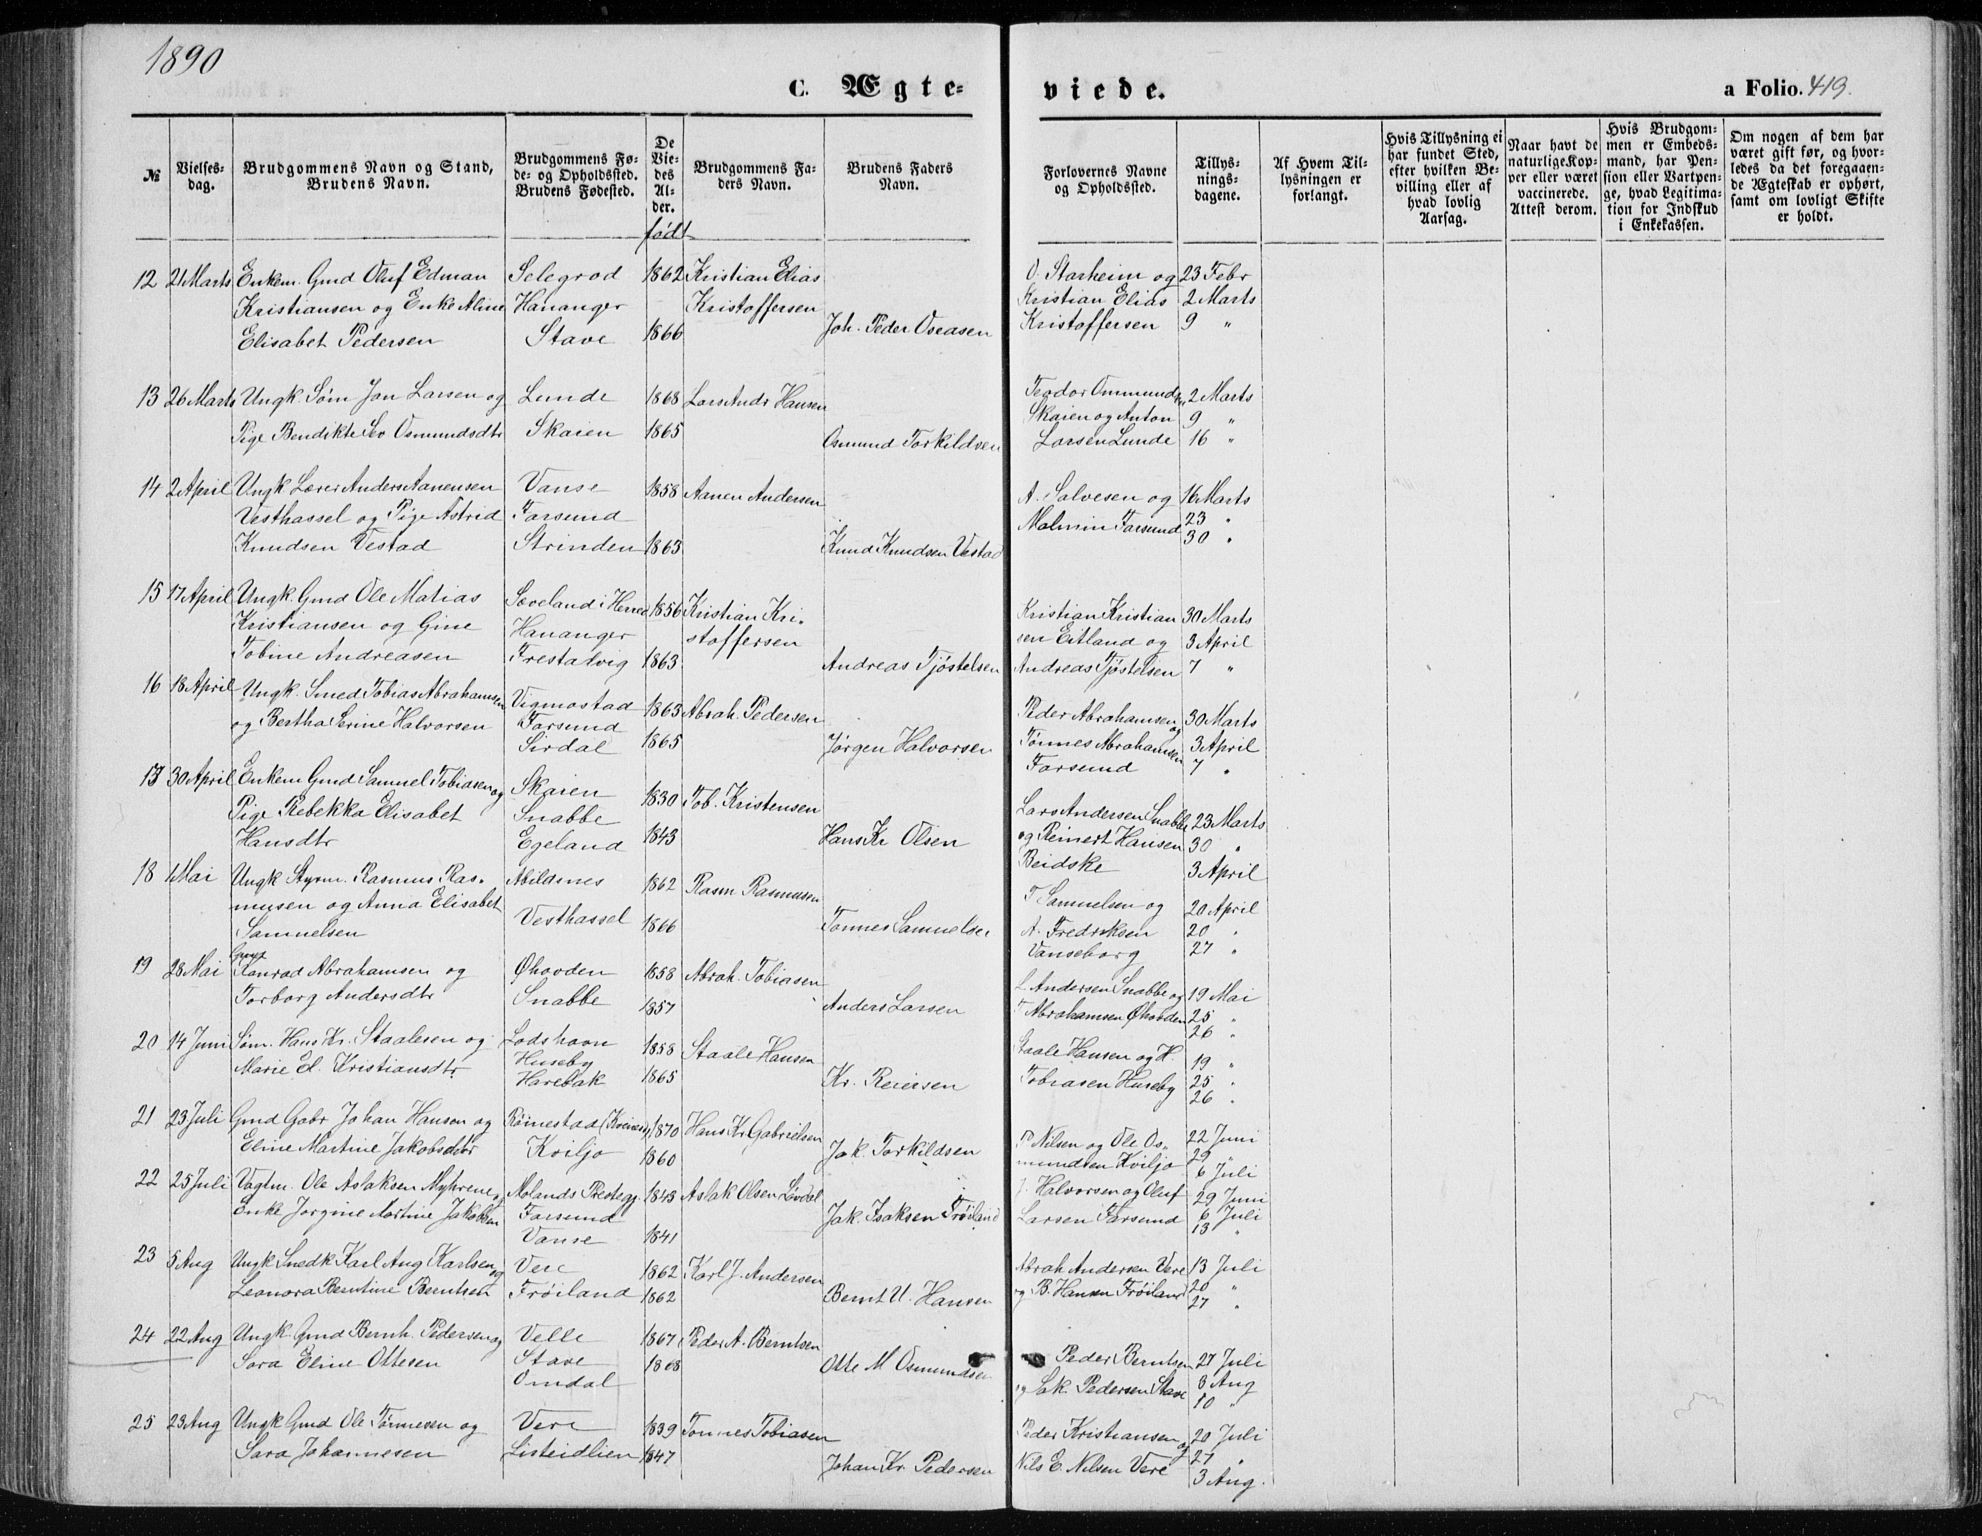 1890
C. Ægte-
viede.
a Folio. 419.
№
Vielses-
dag.
Brudgommens Navn og Stand,
Brudens Navn.
Brudgommens Fø-
de- og Opholdssted.
Brudens Fødested.
De
Vie-
des
Al-
der.
født
Brudgommens Fa-
ders Navn.
Brudens Faders
Navn.
Forlovernes Navne
og Opholdssted.
Tillys-
nings-
dagene.
Af Hvem Til-
lysningen er
forlangt.
Hvis Tillysning ei
har fundet Sted,
efter hvilken Be-
villing eller af
hvad lovlig
Aarsag.
Naar havt de
naturlige Kop-
per eller været
vaccinerede.
Attest derom.
Hvis Brudgom-
men er Embeds-
mand, har Pen-
sion eller Vartpen-
ge, hvad Legitima-
tion for Indskud
i Enkekassen.
Om nogen af dem har
været gift før, og hvor-
ledes da det foregaaen-
de Ægteskab er ophørt,
samt om lovligt Skifte
er holdt.
12 21 Marts Enkem. Gmd Oluf Edman Selegrod 1862 Kristian Elias O. Starheim og 23 Febr
Kristiansen og Enke Aline Hananger Kristoffersen Kristian Elias 2 Marts
Elisabet Pedersen Stave 1866 Joh. Peder Oseasen Kristoffersen 9 "
13 26 Marts Ungk. Søm Jan Larsen og Lunde 1868 Lars Andr Hansen Teodor Ommunds 2 Marts
Skaien og Anton 9 "
Pige Bendikte Sev Osmundsdtr Skaien 1865 Osmund Torkildsen Larsen Lunde 16 "
14 2 April Ungk Lærer Anders Aanensen Vanse 1858 Aanen Andersen A. Salvesen og 16 Marts
Vesthassel og Pige Astrid Farsund Malmin Farsund 23 "
Knudsen Vestad Strinden 1863 Knud Knudsen Vestad 30 "
15 17 April Ungk. Gmd Ole Matias Sæveland i Herred 1856 Kristian Kri- Kristian Kristian 30 Marts
Kristiansen og Gine Hananger stoffersen sen Eitland og 3 April
Tobine Andreasen Frestatvig 1863 Andreas Tjøstelsen Andreas Tjøstelsen 7 "
16 18 April Ungk. Smed Tobias Abrahamsen Vigmostad 1863 Abrah. Pedersen Peder Abrahamsen og 30 Marts
og Bertha Serine Halvorsen Farsund Tønnes Abrahamsen 3 April
Sirdal 1865 Jørgen Halvorsen Farsund 7 "
17 30 April Enkem Gmd Samuel Tobiasen og Skaien 1830 Tob. Kristensen Lars Andersen Snabbe 23 Marts
Pige Rebekka Elisabet Snabbe og Reinert Hansen 30 "
Hansdtr Egeland 1843 Hans Kr Olsen Beidske 3 April
18 1 Mai Ungk Styrm. Rasmus Ras- Abildsnes 1862 Rasm Rasmusen T Samuelsen og 20 April
musen og Anna Elisabet Vesthassel 1866 Tønnes Samuelsen A. Fredriksen 20 "
Samuelsen Vanseborg 27 "
19 28 Mai Konrad Abrahamsen og Øhovden 1858 Abrah. Tobiasen L Andersen Snabbe og 19 Mai
Torborg Andersdtr Snabbe 1857 Anders Larsen T Abrahamsen Øhovden 25 "
26 "
20 14 Juni Søm. Hans Kr. Staalesen og Lodshavn 1858 Staale Hansen Staale Hansen og H. 19 "
Marie El. Kristiansdtr Huseby Tobiasen Huseby 25 "
Harebak 1865 Kr. Reiersen 26 "
21 23 Juli Gmd Gabr Johan Hansen og Røinestad 1870 Hans Kr Gabrielsen P Nilsen og Ole Os- 22 Juni
Eline Martine Jakobsdtr Kviljo 1860 Jak. Torkildsen mundsen Kviljo 29 "
6 Juli
22 25 Juli Vagtm. Ole Aslaksen Myhrene og Molands Prestegj. 1843 Aslak Olsen J. Halvorsen og Oluf 29 Juni
Enke Jørgine Martine Jakobsen Farsund Jak. Isaksen Frøiland Larsen Farsund 6 Juli
Vanse 1841 13 "
23 5 Aug Ungk Snedk Karl Aug Karlsen og Vere 1862 Karl J. Andersen Abrah Andersen Vere 13 Juli
Leonora Berntine Berntsen Frøiland 1862 Bernt U. Hansen og B. Hansen Frøiland 20 "
27 "
24 22 Aug Ungk. Gmd Bernh. Pedersen og Velle 1867 Peder A. Berntsen Peder Berntsen 27 Juli
Sara Eline Ottesen Stave 1868 Otte M Osmundsen og Sak. Pedersen Stave 3 Aug
Omdal 10 "
25 23 Aug Ungk Gmd Ole Tønnesen og Vere 1839 Tønnes Tobiasen Peder Kristiansen og 20 Juli
Sara Johannesen Listeidlien 1847 Johan Kr. Pedersen Nils E. Nilsen Vere 27 "
3 Aug.